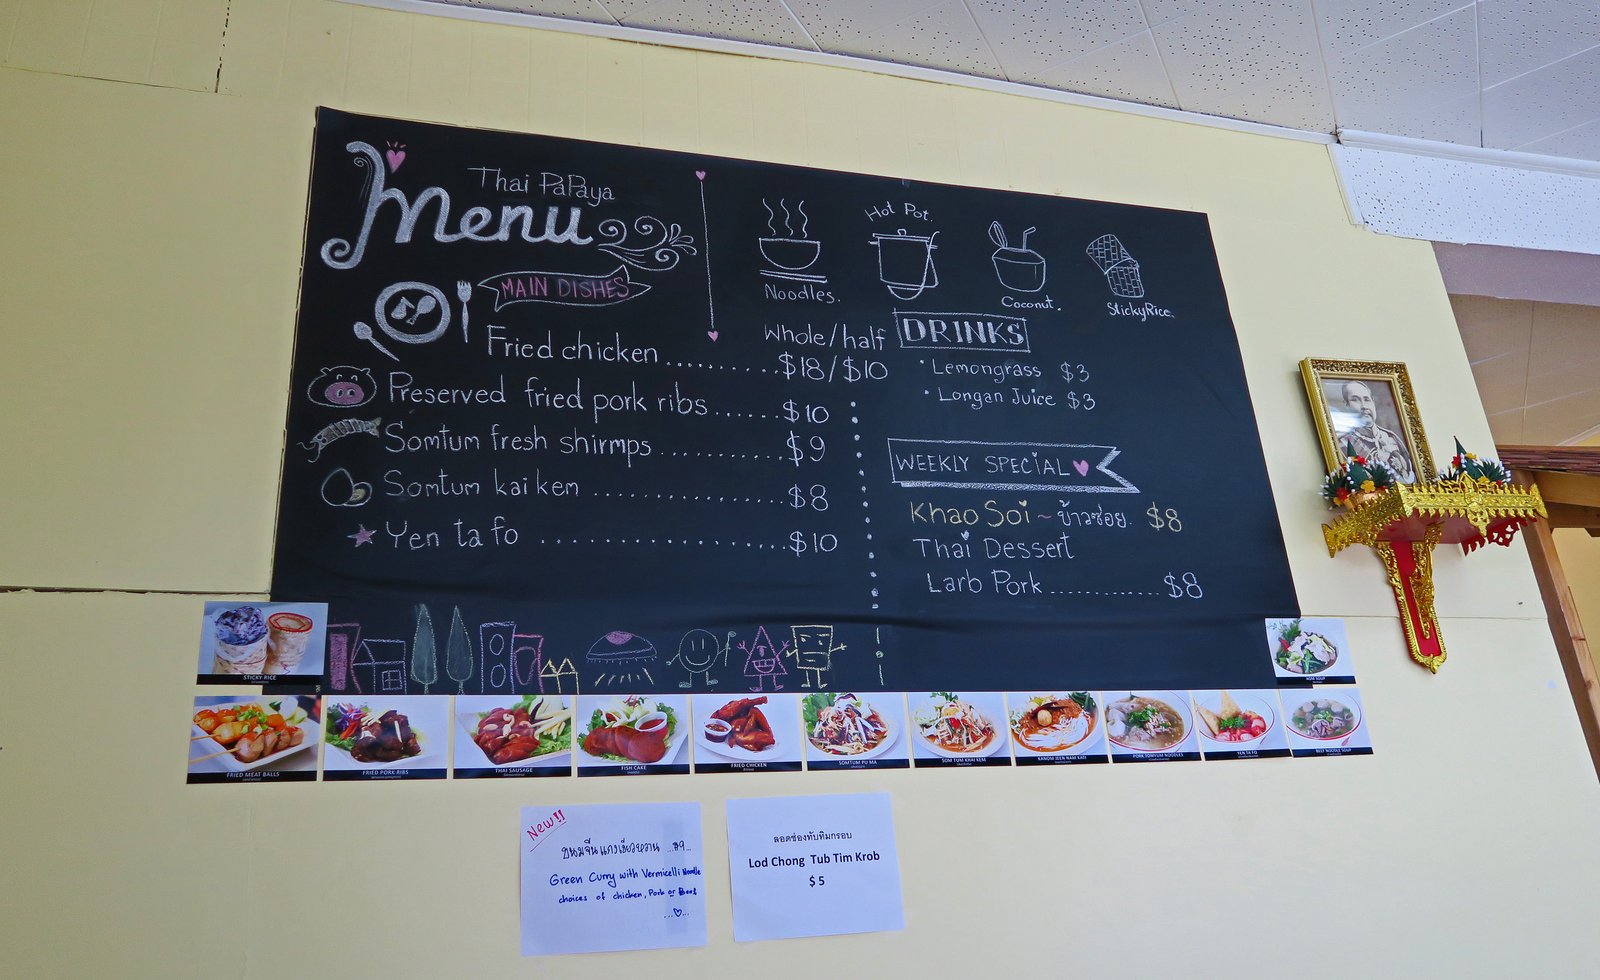 Thai PaPaya
Menu
MAIN DISHES
Whole/half
Fried chicken .......... $18/$10
Preserved fried pork ribs...... $10
Somtum fresh shirmps .......... $9
Somtum kai kem .................. $8
Yen ta fo ....................... $10
Noodles.
Hot Pot.
Coconut.
Sticky Rice.
DRINKS
· Lemongrass $3
· Longan Juice $3
WEEKLY SPECIAL
Khao Soi ~ ข้าวซ่อย. $8
Thai Dessert
Larb Pork ............. $8
STICKY RICE
FRIED MEAT BALLS
FRIED PORK RIBS
THAI SAUSAGE
FISH CAKE
FRIED CHICKEN
SOMTUM PU MA
SOM TUM KHAI KEM
KANOM JEEN NAM KATI
PORK TOMYUM NOODLES
YEN TA FO
BEEF NOODLE SOUP
New!!
ขนมจีนแกงเขียวหวาน ...$9...
Green Curry with Vermicelli Noodle
choices of chicken, Pork or Beef
ลอดช่องทับทิมกรอบ
Lod Chong Tub Tim Krob
$ 5